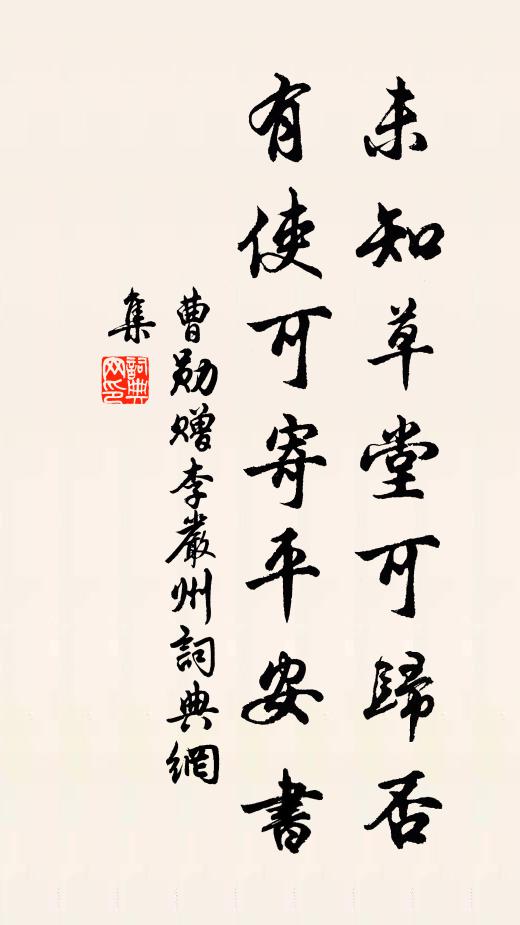 未知草堂可歸否
有使可寄平安書
曹勛贈李嚴州詞典網
集
詞典網印